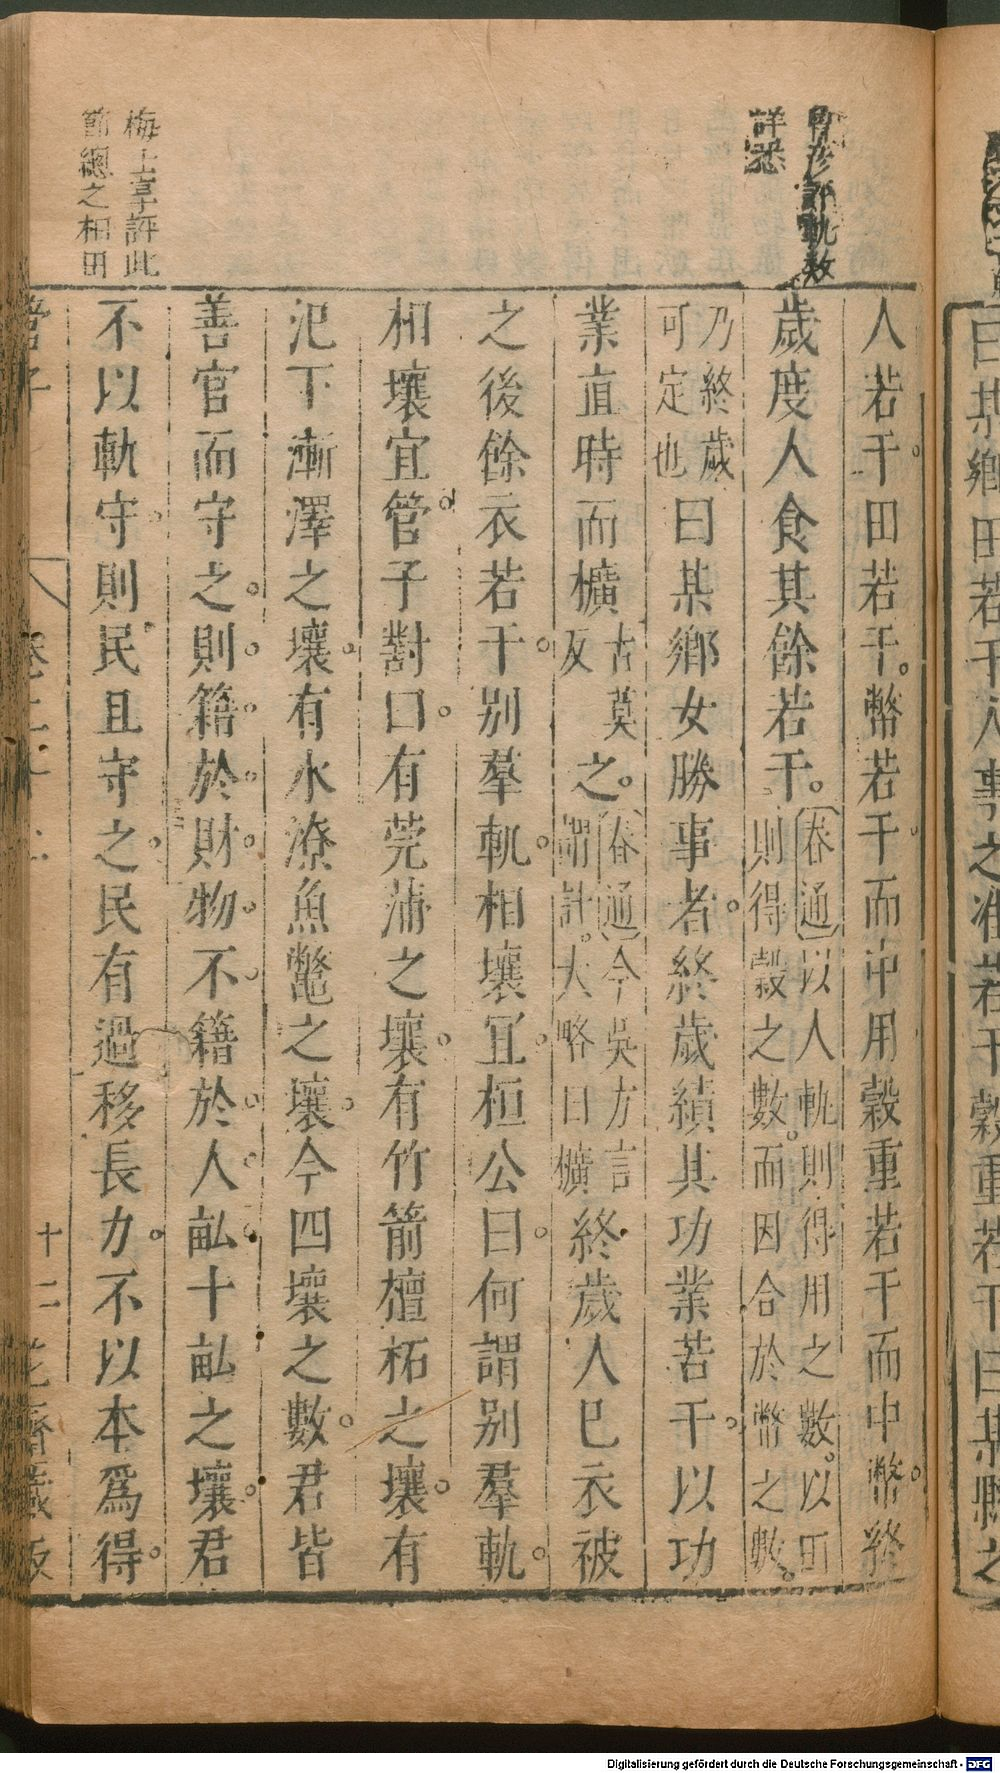 詳悉
梅士享評此
節總之相田
人若干田若干幣若干而中用穀重若干而中幣終
歲度人食其餘若干春通以人軌則得用之數以田
則得穀之數而因合於幣之數
乃終歲
可定也曰某鄉女勝事者終歲績其功業若干以功
業直時而櫎古莫
反之春通今吳方言
謂計大略曰櫎終歲人已衣被
之後餘衣若干別羣軌相壤宜桓公曰何謂別羣軌
相壤宜管子對曰有莞蒲之壤有竹箭檀柘之壤有
汜下漸澤之壤有水潦魚鼈之壤今四壤之數君皆
善官而守之則籍於財物不籍於人畝十畝之壤君
不以軌守則民且守之民有過移長力不以本爲得
管子
十二
曰某鄉田若干人事之准若干穀重若干曰某縣之
Digitalisierung gefördert durch die Deutsche Forschungsgemeinschaft - DFG